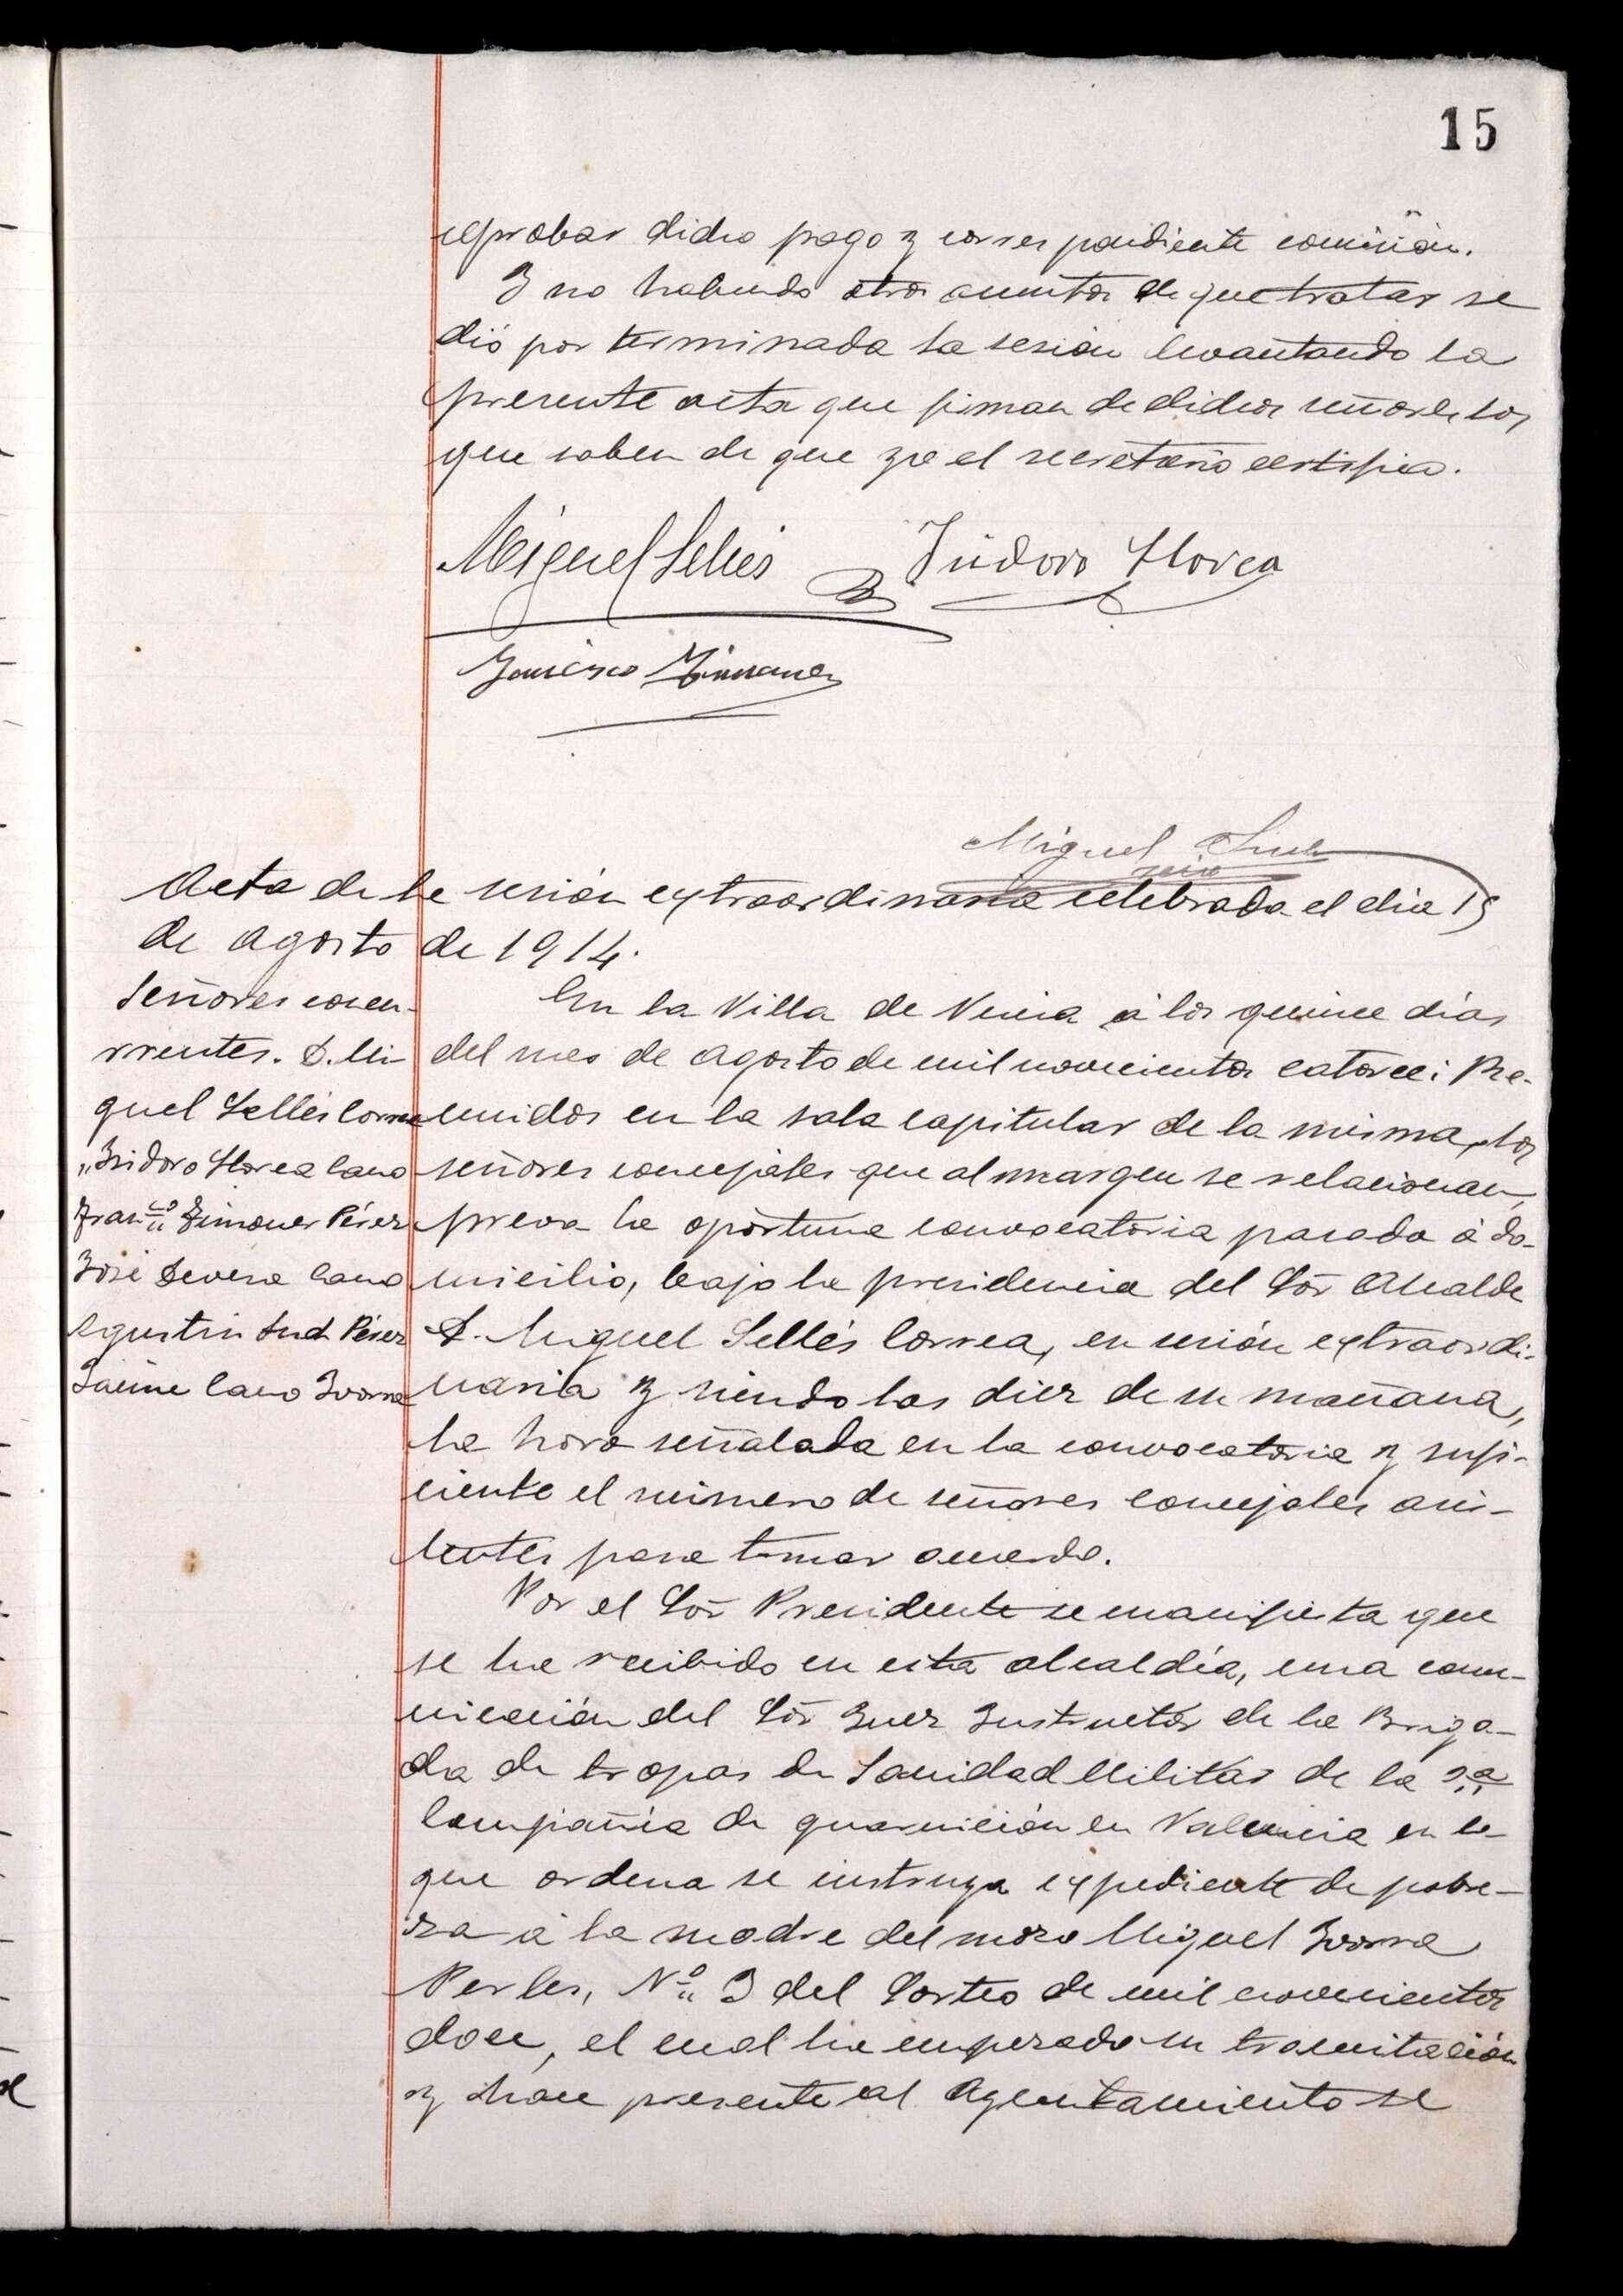 15
aprobar dicho pago y correspondiente comisión.
Y no habiendo otros asuntos de que tratar se
dió por terminada la sesión levantando la
presente acta que firman de dichos señores los
que saben de que yo el secretario certifico.
Miguel Sellés Isidoro Llorca
Francisco Ximenez
Miguel
Acta de la sesión extraordinaria celebrada el dia 15
de Agosto de 1914.
Señores concu-
rrentes. D. Mi-
guel Sellés Correa
" Isidoro Llorca Cano
Fran.co Ximenez Pérez
José Devesa Cano
Agustin Such Pérez
Jaime Cano Ivorra
En la Villa de Nucia á los quince días
del mes de Agosto de mil novecientos catorce: Re-
unidos en la sala capitular de la misma, los
señores concejales que al margen se relacionan,
previa la oportuna convocatoria pasada á do-
micilio, bajo la presidencia del Sor Alcalde
D. Miguel Sellés Correa, en sesión extraordi-
naria y siendo las diez de su mañana,
la hora señalada en la convocatoria y sufi-
ciente el número de señores concejales asis-
tentes para tomar acuerdo.
Por el Sor Presidente se manifiesta que
se ha recibido en esta alcaldía, una comu-
nicación del Sor Juez Instructor de la Briga-
da de tropas de Sanidad Militar de la
Compañía de guarnición en Valencia en la
que ordena se instruya expediente de pobre-
za á la madre del mozo Miguel Ivorra
Perles, Nº 3 del Sorteo de mil novecientos
doce, el cual ha empezado su tramitación
y hace presente al Ayuntamiento se